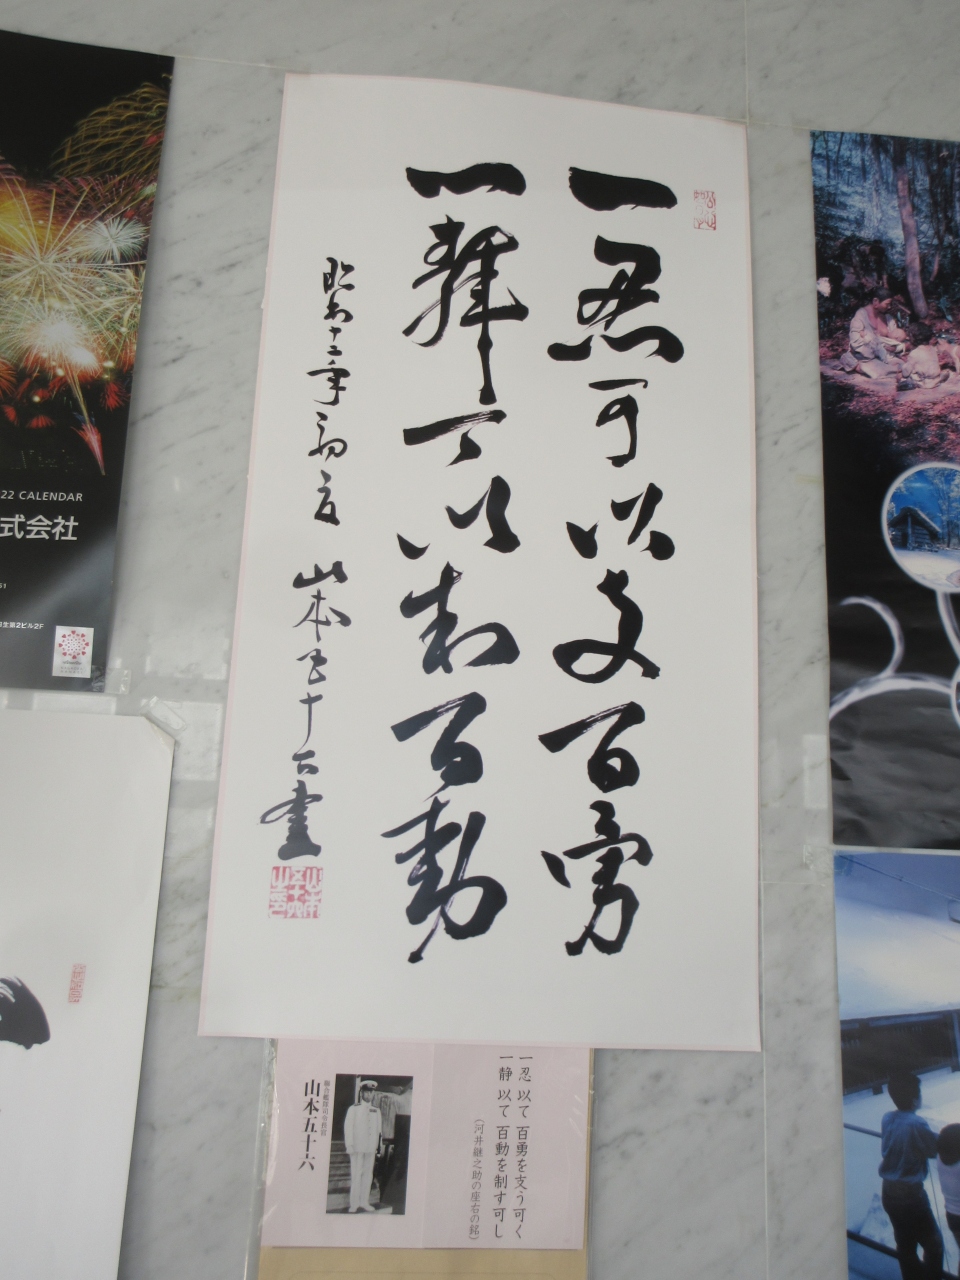 一忍可以支百勇
一静可以制百動
昭和十二年初夏 山本五十六書
一忍 以て 百勇を支う可く
一静 以て 百動を制す可し
(河井継之助の座右の銘)
聯合艦隊司令長官
山本五十六
22 CALENDAR
式会社